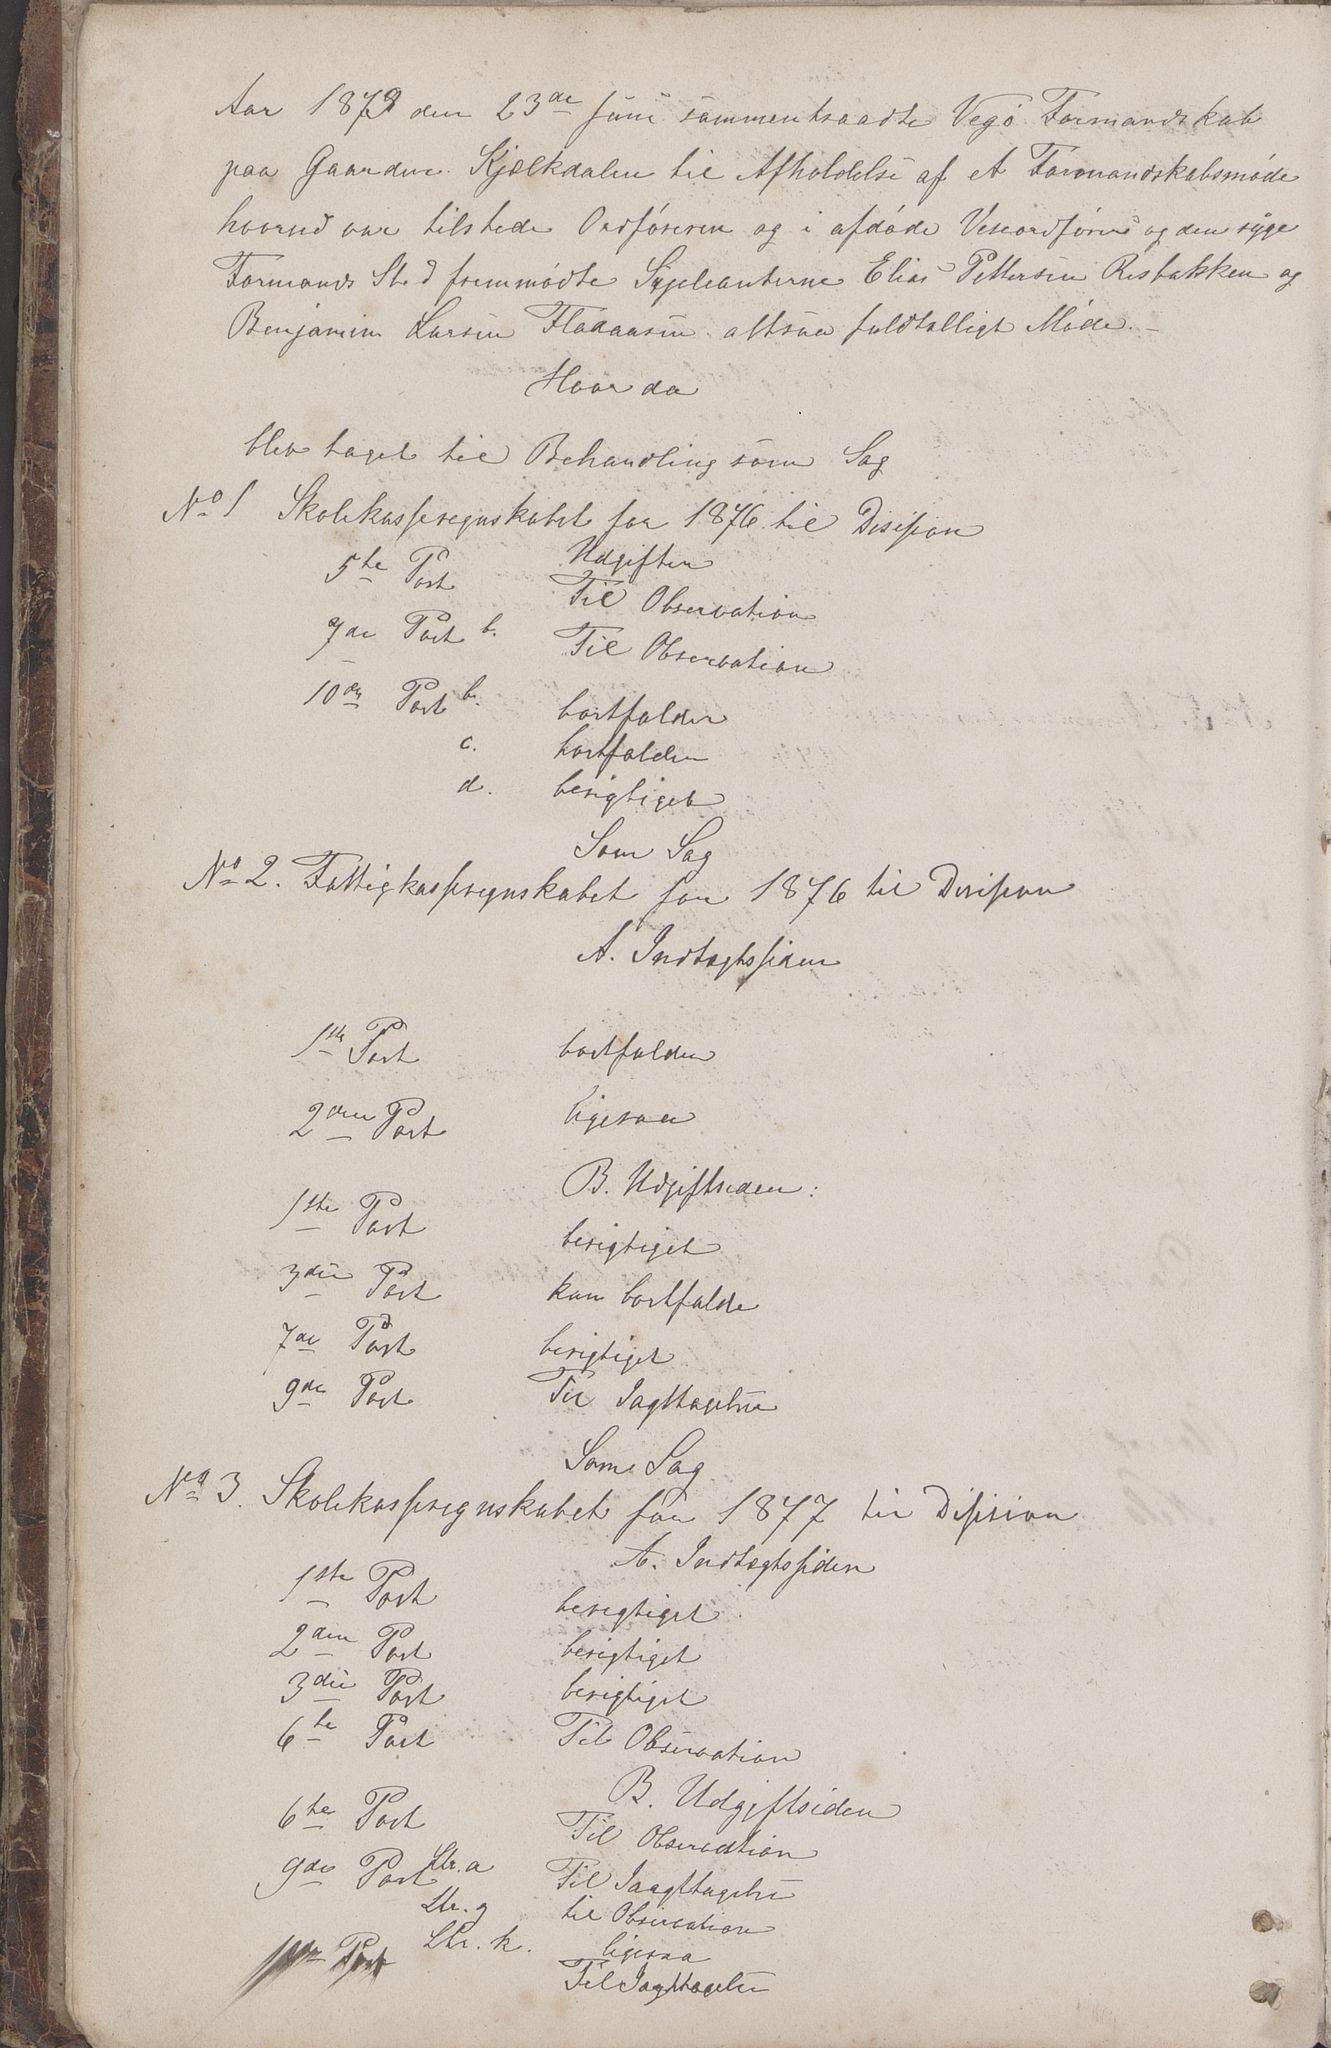 Aar 1878 den 23de Juni sammentraadte Vegø Formandskab
paa Gaarden Kjælkdalen til Afholdelse af et Formandskabsmøde
hvorved var tilstede Ordføreren og i afdøde Viceordførers og den syge
Formands Sted fremmødte Supleanterne Elias Pettersen Resbakken og
Benjamin Larsen Flaaasen altsaa fuldtalligt Møde. –
Hvor da
blev taget til Behandling som Sag
No 1 Skolekasseregnskabet for 1876 til Desision
Udgiften
5te Post Til Observation
7de Post b. Til Observation
10de Post b. bortfalder
c. bortfalder
d. berigtiget
Som Sag
No 2. Fattigkasseregnskabet for 1876 til Desision
A. Indtægtssiden
1ste Post bortfalder
2den Post ligesaa
B. Udgiftsiden:
1ste Post berigtiget
3die Post kan bortfalde
7de Post berigtiget
9de Post Til Iagttagelse
Som Sag
No 3. Skolekasseregnskabet for 1877 til Dissision
A. Indtægtssiden
1ste Post berigtiget
2den Post berigtiget
3die Post berigtiget
6te Post Til Observation
B. Udgiftsiden
6te Post Til Observation
9de Post Ltr. a Til Iaagttagelse
Ltr. g til Observation
Ltr. h. ligesaa
Post Til Iagttagelse